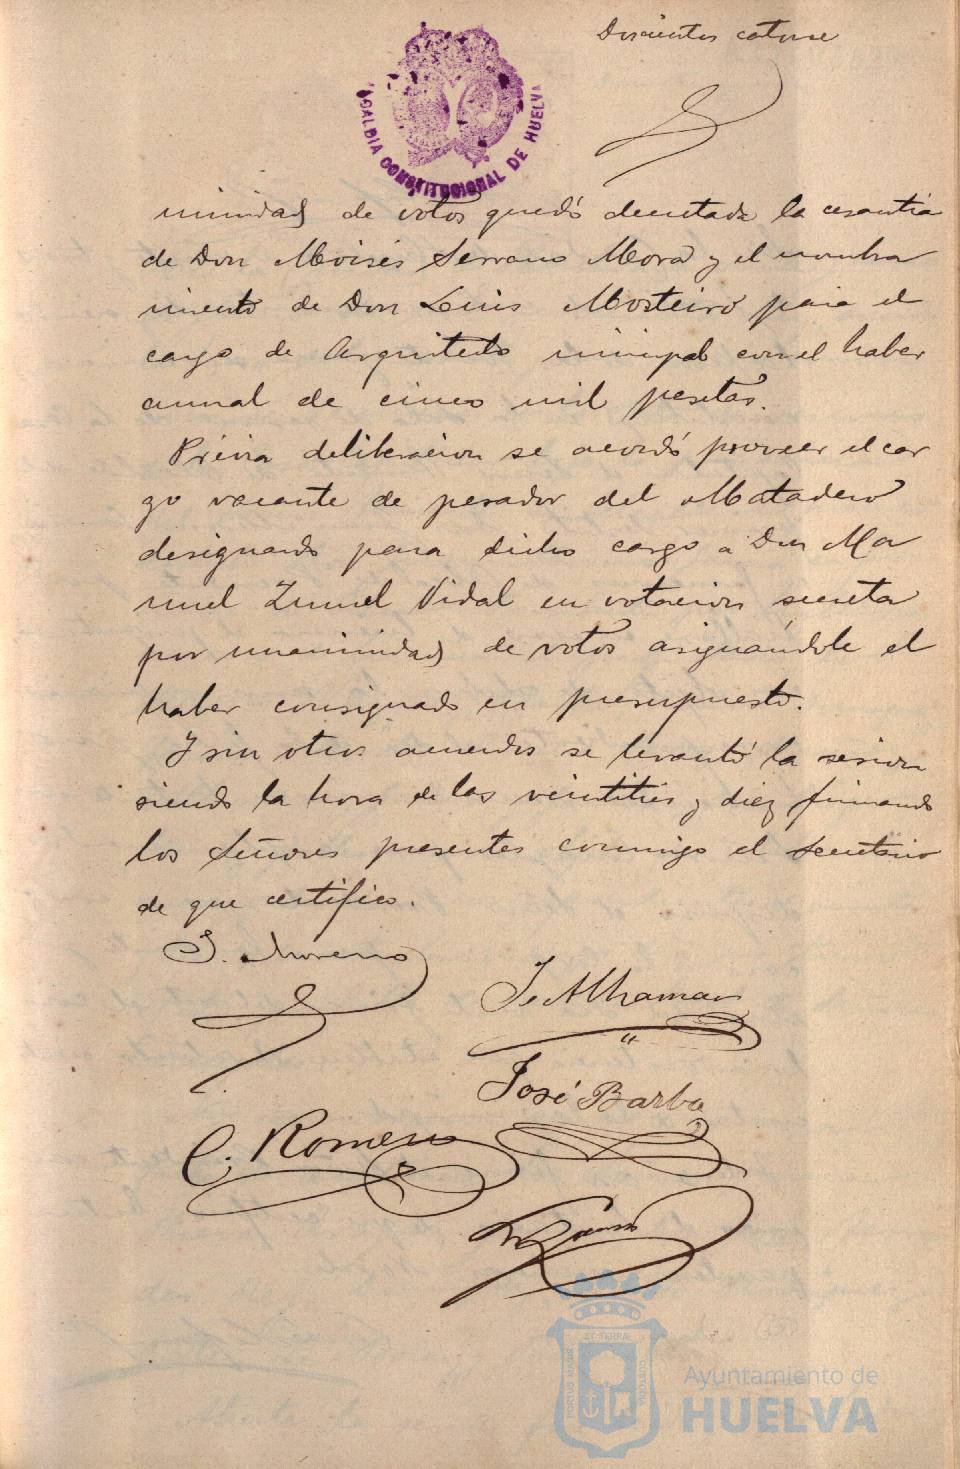 Doscientos catorce
ALCALDIA CONSTITUCIONAL DE HUELVA
nimidad de votos quedó decretada la cesantia
de Don Moisés Serrano Mora y el nombra
miento de Don Luis Mosteiro para el
cargo de Arquitecto municipal con el haber
anual de cinco mil pesetas.
Prévia deliberacion se acordó proveer el car
go vacante de pesador del Matadero
designando para dicho cargo a Don Ma
nuel Zunel Vidal en votacion secreta
por unanimidad de votos asignándole el
haber consignado en presupuesto.
Y sin otros acuerdos se levantó la sesion
siendo la hora de las veintitres y diez firmando
los Señores presentes conmigo el Secretario
de que certifico.
J. Moreno
J. Alhama
José Barba
C. Romero
PORTUS MARIS ET TERRAE CUSTODIA
Ayuntamiento de
HUELVA